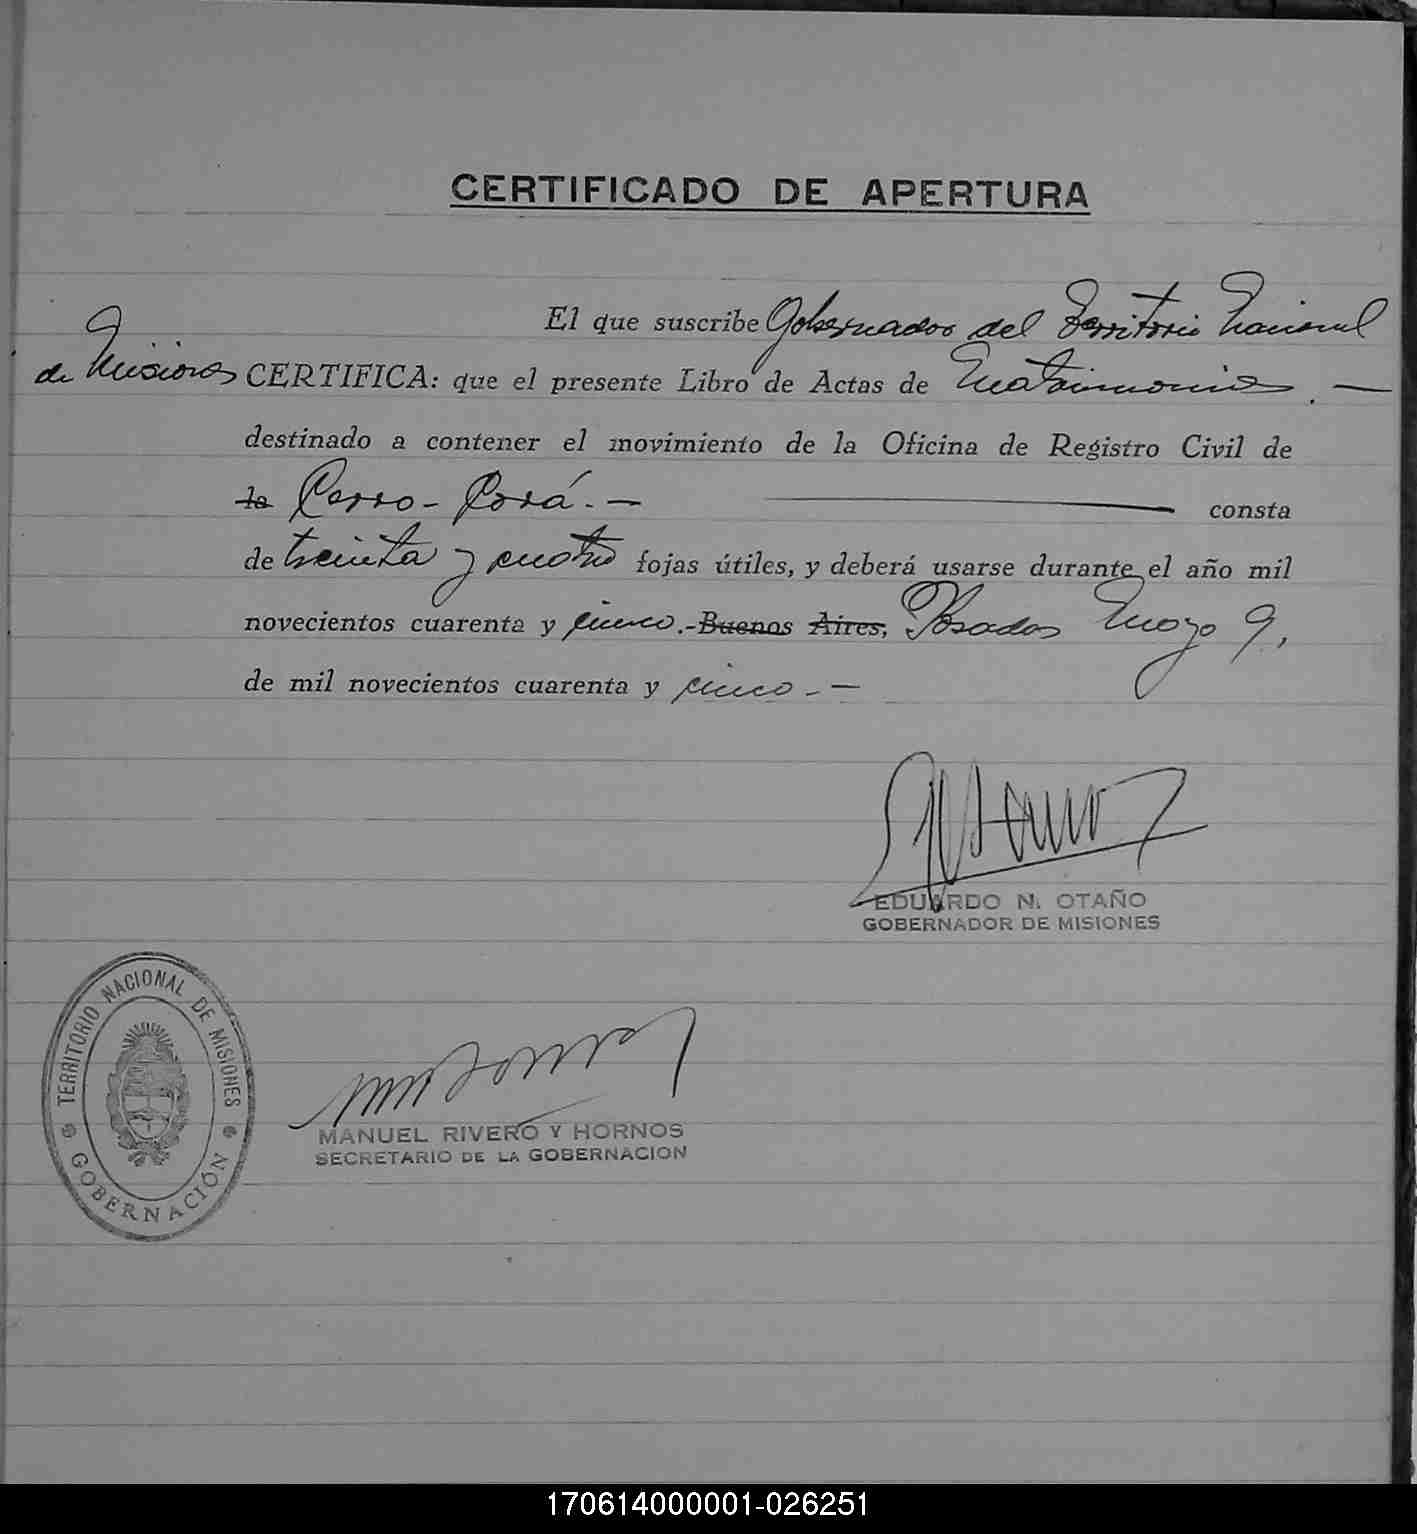 CERTIFICADO DE APERTURA
El que suscribe Gobernador del Territorio Nacional
de Misiones CERTIFICA: que el presente Libro de Actas de Matrimonios. —
destinado a contener el movimiento de la Oficina de Registro Civil de
la Cerro-Corá. — consta
de treinta y cuatro fojas útiles, y deberá usarse durante el año mil
novecientos cuarenta y cinco.- Buenos Aires, Posadas Mayo 9,
de mil novecientos cuarenta y cinco. —
EDUARDO N. OTAÑO
GOBERNADOR DE MISIONES
TERRITORIO NACIONAL DE MISIONES
GOBERNACIÓN
MANUEL RIVERO Y HORNOS
SECRETARIO DE LA GOBERNACION
170614000001-026251